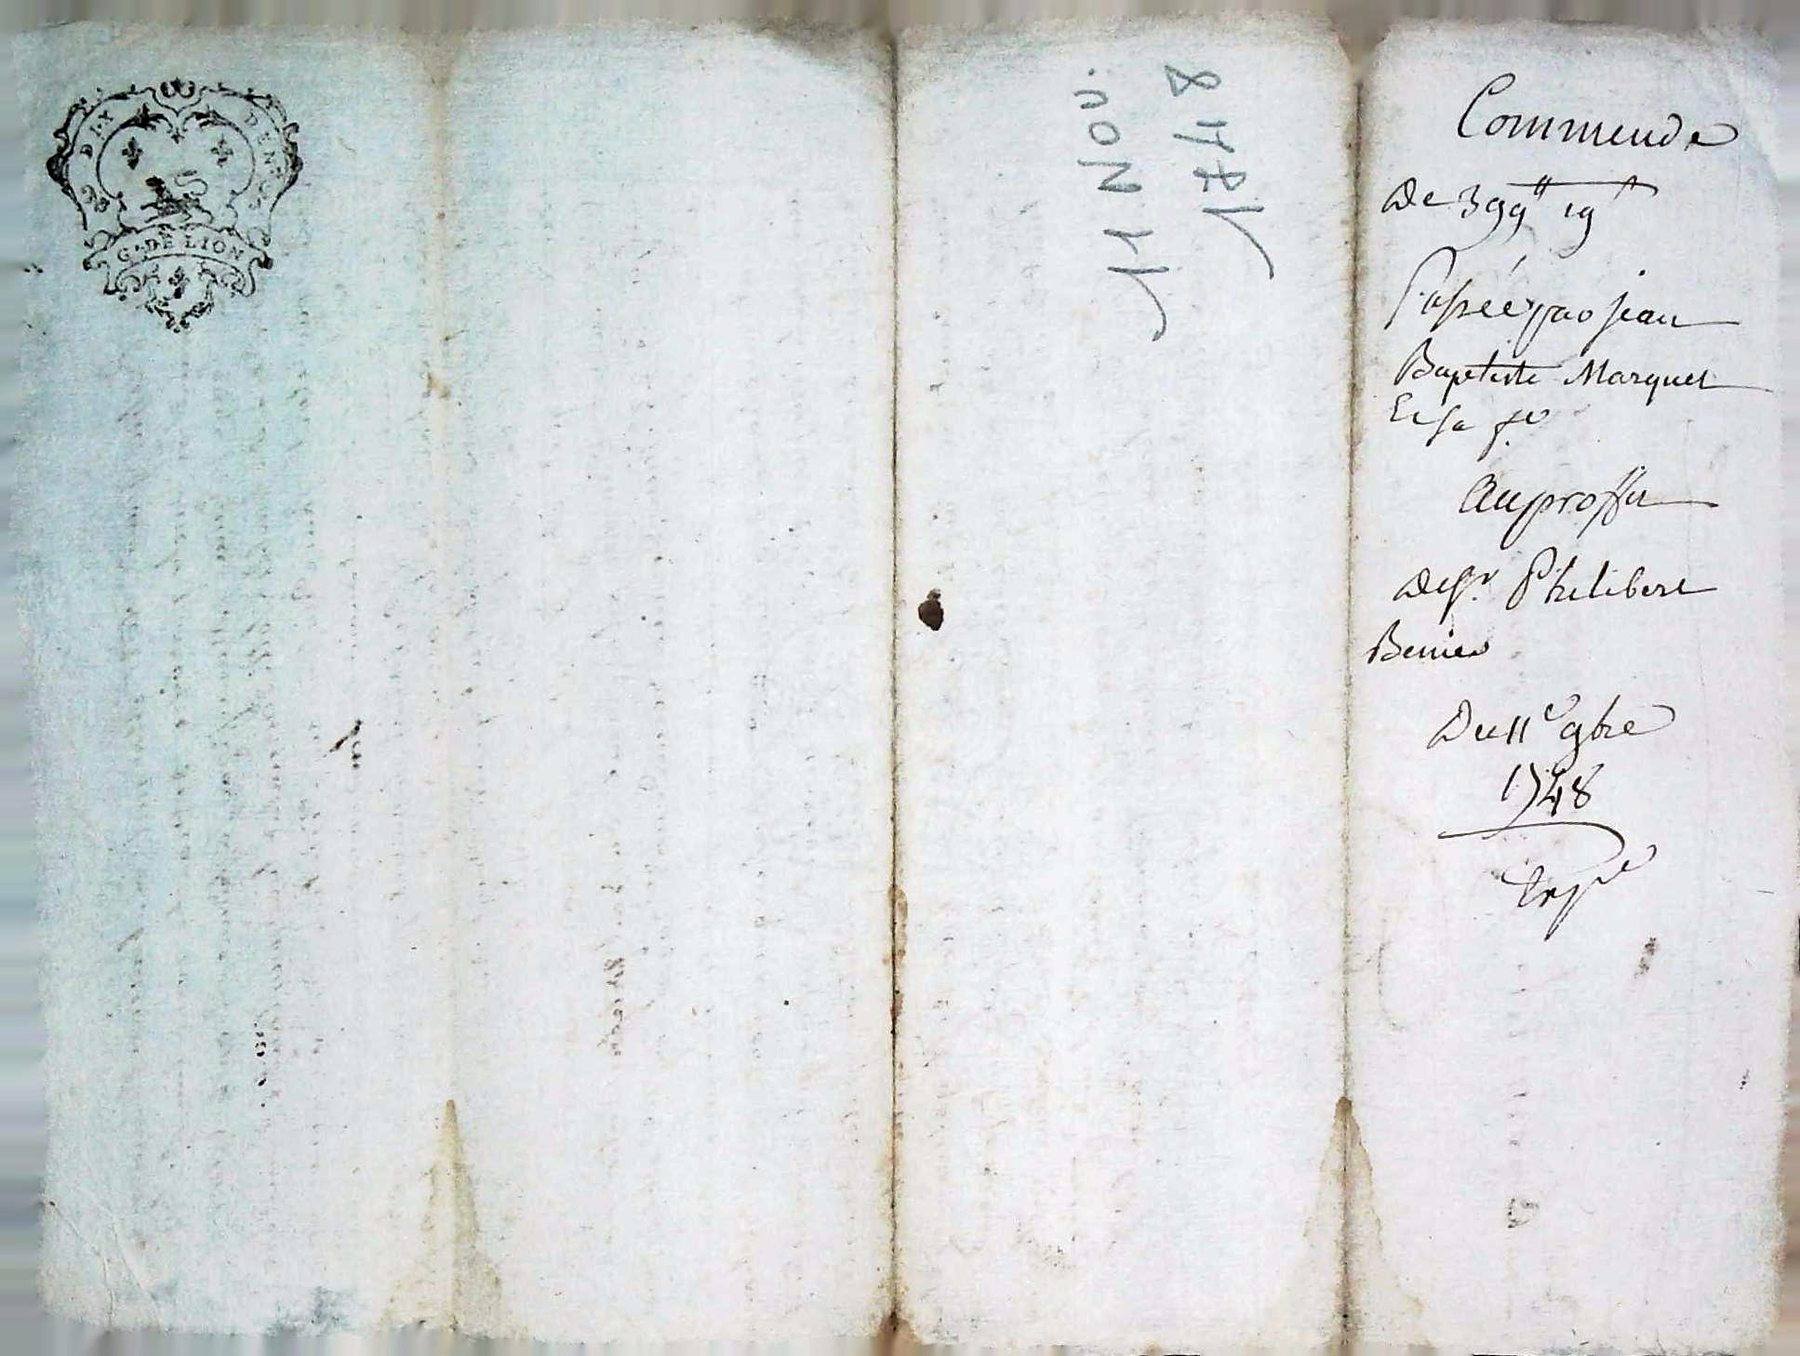 DIX DEN. 8
G. DE LION
1748
11 Nov.
Commende
De 399# 19s
Passée par jean
Baptiste Marquet
Et sa fe.
Au proffit
De sr. Philibert
Du 11e 9bre
1748
Expé